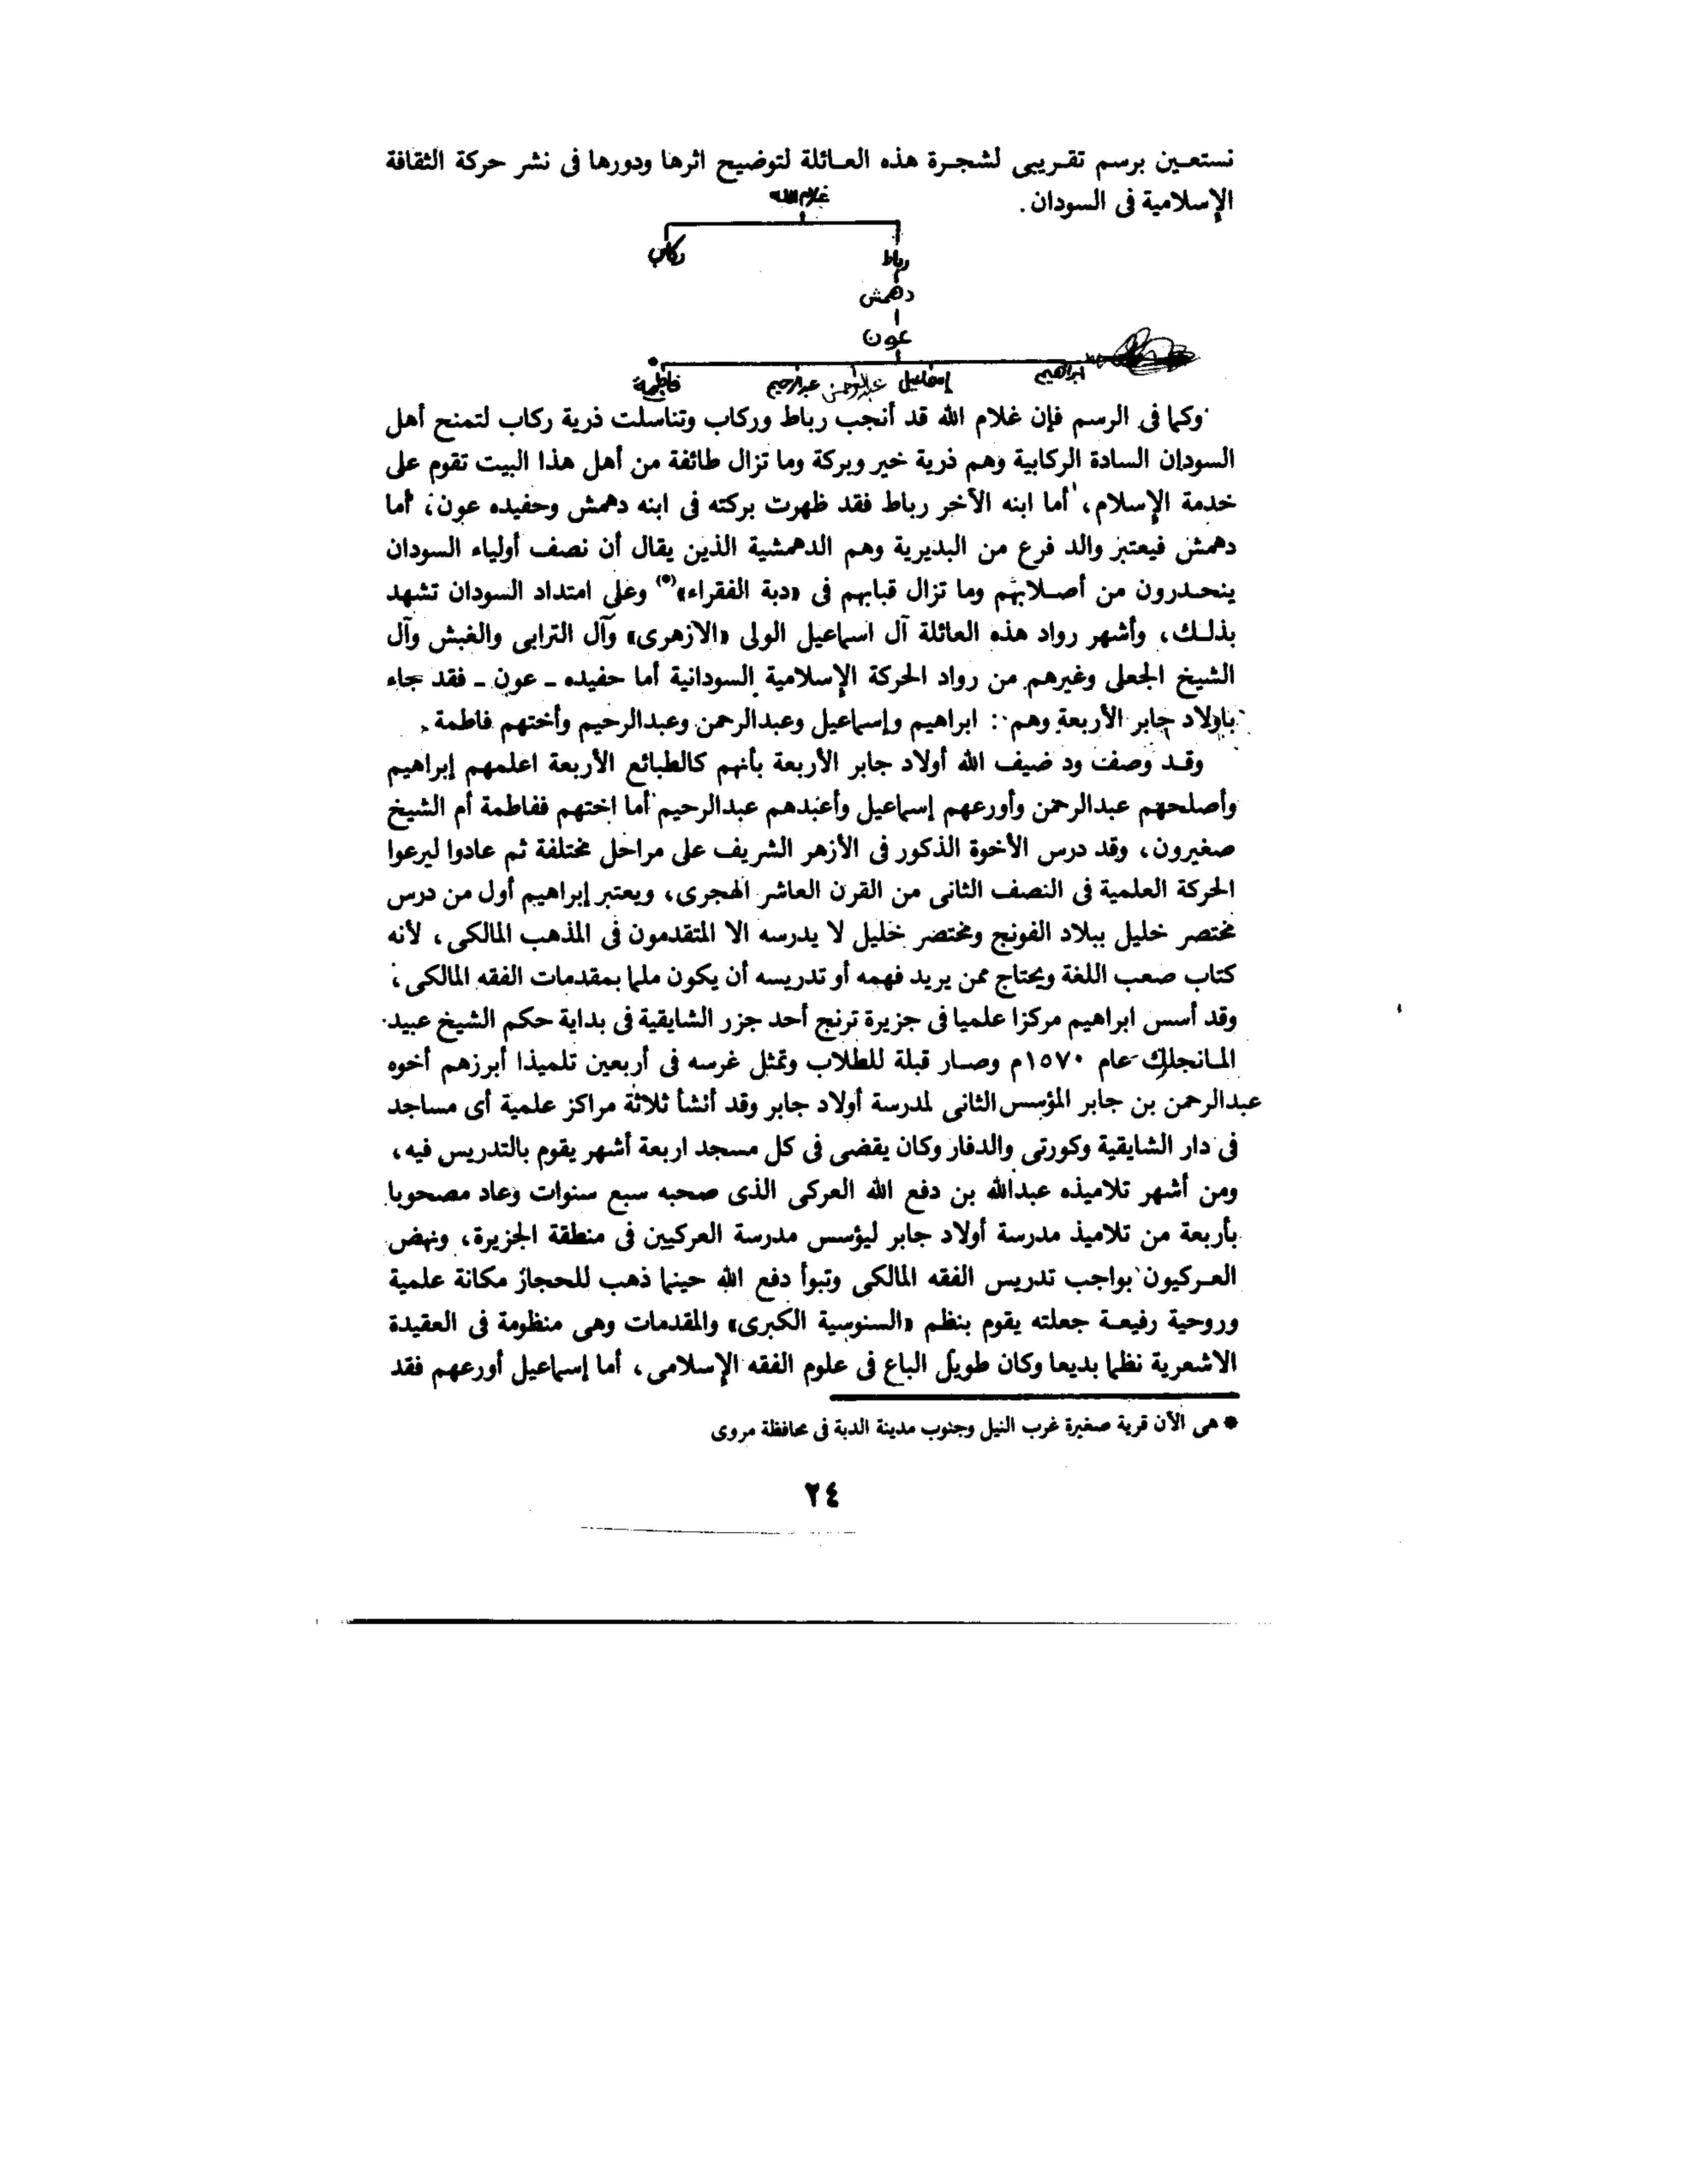 نستعـين برسم تقـريبى لشجـرة هذه العـائلة لتوضيح اثرها ودورها فى نشر حركة الثقافة
الإسلامية فى السودان .
غلام الله
رباط
ركاب
دهمش
عون
ابراهيم
إسماعيل
عبدالرحمن
عبدالرحيم
فاطمة
وكما فى الرسم فإن غلام الله قد أنجب رباط وركاب وتناسلت ذرية ركاب لتمنح أهل
السودان السادة الركابية وهم ذرية خير وبركة وما تزال طائفة من أهل هذا البيت تقوم على
خدمة الإسلام، أما ابنه الآخر رباط فقد ظهرت بركته فى ابنه دهمش وحفيده عون، أما
دهمش فيعتبر والد فرع من البديرية وهم الدهمشية الذين يقال أن نصف أولياء السودان
ينحـدرون من أصـلابهم وما تزال قبابهم فى «دبة الفقراء»(*) وعلى امتداد السودان تشهد
بذلـك، وأشهر رواد هذه العائلة آل اسماعيل الولى «الازهرى» وآل الترابى والغبش وآل
الشيخ الجعلى وغيرهم من رواد الحركة الإسلامية السودانية أما حفيده ـ عون ـ فقد جاء
باولاد جابر الأربعة وهم : ابراهيم وإسماعيل وعبدالرحمن وعبدالرحيم وأختهم فاطمة .
وقـد وصف ود ضيف الله أولاد جابر الأربعة بأنهم كالطبائع الأربعة اعلمهم إبراهيم
وأصلحهم عبدالرحمن وأورعهم إسماعيل وأعبدهم عبدالرحيم أما اختهم ففاطمة أم الشيخ
صغيرون، وقد درس الأخوة الذكور فى الأزهر الشريف على مراحل مختلفة ثم عادوا ليرعوا
الحركة العلمية فى النصف الثانى من القرن العاشر الهجرى، ويعتبر إبراهيم أول من درس
مختصر خليل ببلاد الفونج ومختصر خليل لا يدرسه الا المتقدمون فى المذهب المالكى، لأنه
كتاب صعب اللغة ويحتاج ممن يريد فهمه أو تدريسه أن يكون ملما بمقدمات الفقه المالكى،
وقد أسس ابراهيم مركزا علميا فى جزيرة ترنج أحد جزر الشايقية فى بداية حكم الشيخ عبيد
المـانجلك عام ١٥٧٠م وصـار قبلة للطلاب وتمثل غرسه فى أربعين تلميذا أبرزهم أخوه
عبدالرحمن بن جابر المؤسس الثانى لمدرسة أولاد جابر وقد أنشأ ثلاثة مراكز علمية أى مساجد
فى دار الشايقية وكورتى والدفار وكان يقضى فى كل مسجد اربعة أشهر يقوم بالتدريس فيه،
ومن أشهر تلاميذه عبدالله بن دفع الله العركى الذى صحبه سبع سنوات وعاد مصحوبا
بأربعة من تلاميذ مدرسة أولاد جابر ليؤسس مدرسة العركيين فى منطقة الجزيرة، ونهض
العـركيون بواجب تدريس الفقه المالكى وتبوأ دفع الله حينما ذهب للحجاز مكانة علمية
وروحية رفيعـة جعلته يقوم بنظم «السنوسية الكبرى» والمقدمات وهى منظومة فى العقيدة
الاشعرية نظما بديعا وكان طويل الباع فى علوم الفقه الإسلامى، أما إسماعيل أورعهم فقد
* هى الآن قرية صغيرة غرب النيل وجنوب مدينة الدبة فى محافظة مروى
٢٤